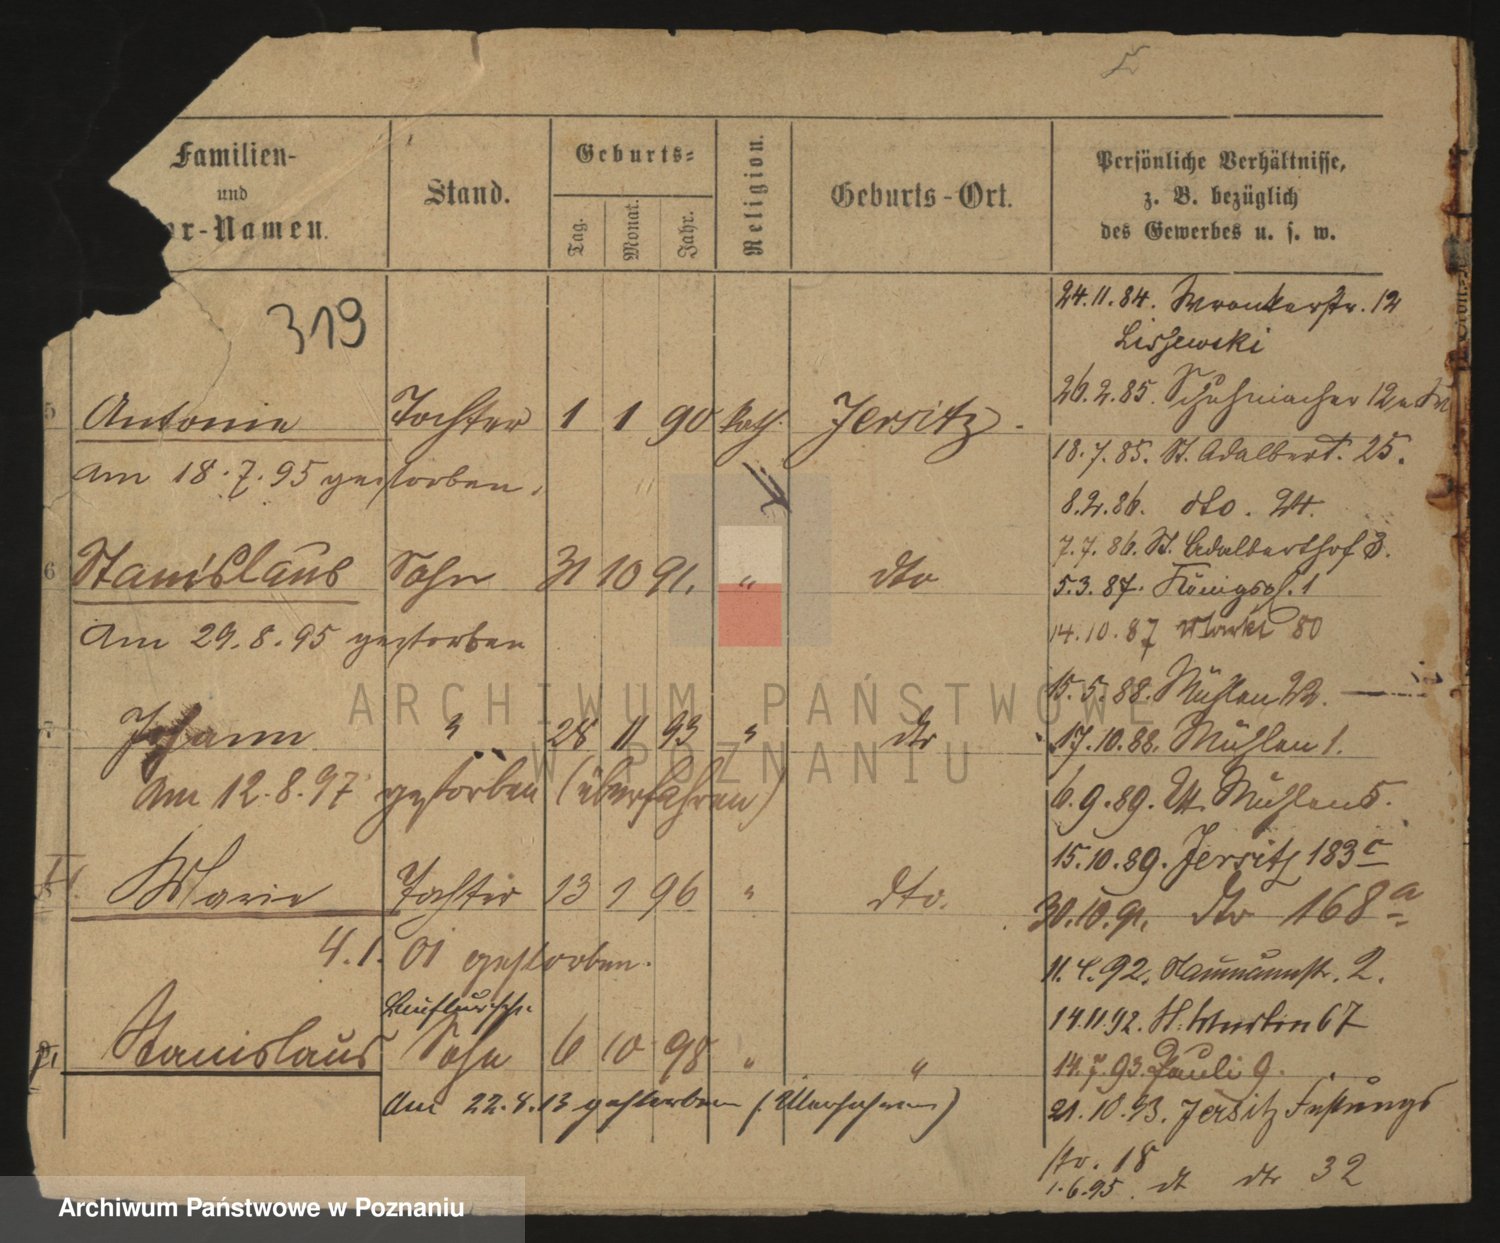 Familien-
und
or-Namen.
Stand.
Geburts-
Tag.
Monat.
Jahr.
Religion.
Geburts-Ort.
Persönliche Verhältnisse,
z. B. bezüglich
des Gewerbes u. s. w.
319
24.11.84. Wronkerstr. 12
Lissewski
26.2.85. Schuhmacher 12
5 Antonie Tochter 1 1 90 kath. Jersitz.
18.7.85. St. Adalbert. 25.
am 18.7.95 gestorben.
8.2.86. dto. 24.
7.7.86. St. Adalberthof 3.
6 Stanislaus Sohn 31 10 91. " dto
5.3.87. Königspl. 1
am 29.8.95 gestorben
14.10.87 Markt 80
15.5.88. Mühlen 22.
7 Johann " 28 11 93 " dto
17.10.88. Mühlen 1.
am 12.8.97 gestorben (überfahren)
6.9.89. Mühlen 5.
15.10.89. Jersitz 183c
Marie Tochter 13 1 96 " dto.
30.10.91. dto 168a
4.1.01 gestorben.
11.4.92. Naumannstr. 2.
Laufbursche
14.11.92. St. Martin 67
Stanislaus Sohn 6 10 98 " "
14.7.93. Pauli 9.
am 22.4.13 gestorben (Überfahren)
21.10.93. Jersitz Festungs
str. 18
1.6.95. dt dto 32
ARCHIWUM PAŃSTWOWE
W POZNANIU
Archiwum Państwowe w Poznaniu